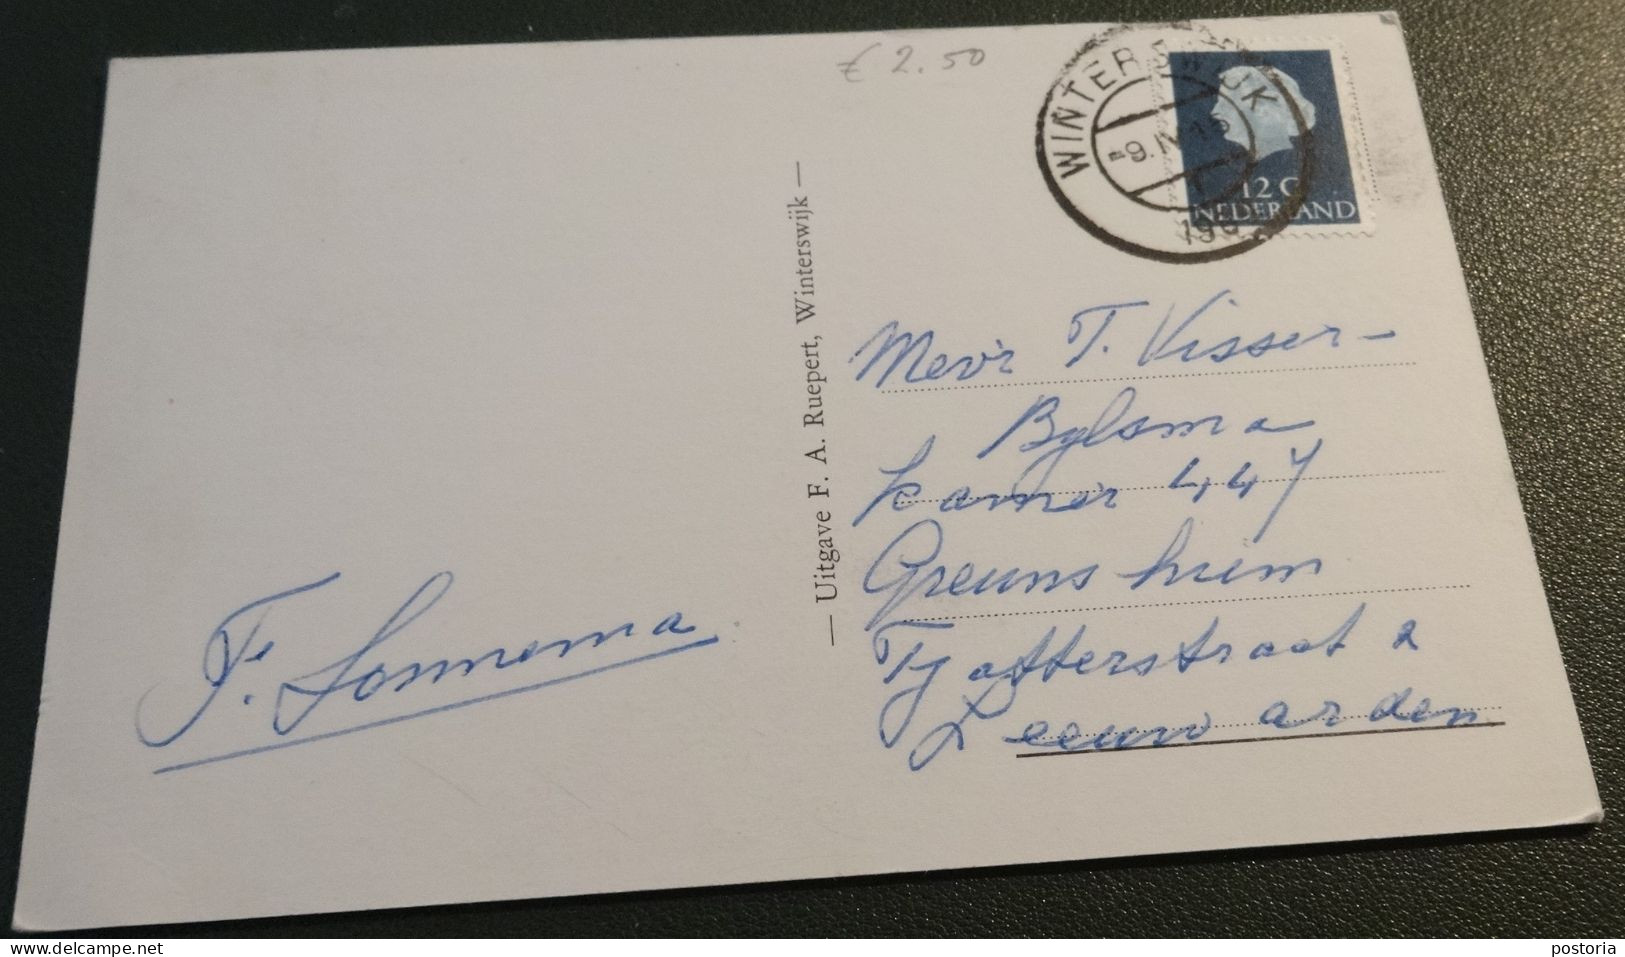 € 2.50
WINTERSWIJK
12 C
NEDERLAND
— Uitgave F. A. Ruepert, Winterswijk —
Mevr T. Visser -
Bylsma
Kamer 447
Greunshiem
Tjotterstraat 2
Leeuwarden
F. Sonnema
postoria